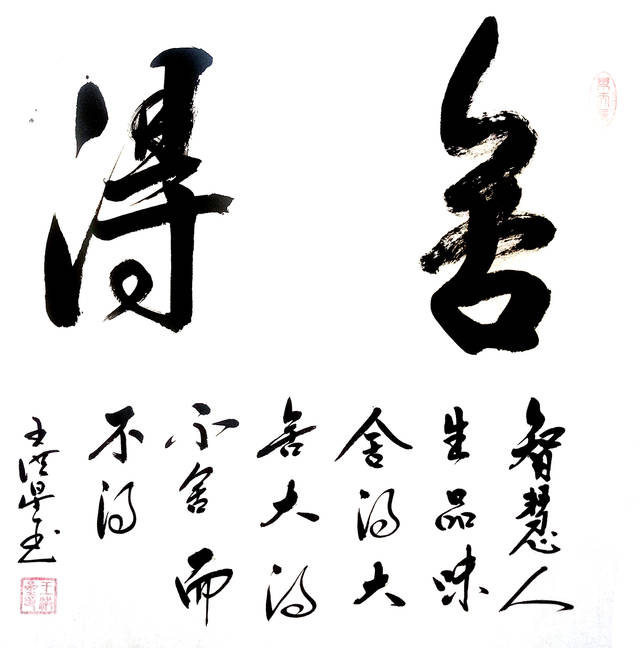 舍得
智慧人
生品味
舍得大
舍大得
不舍而
不得
王洪